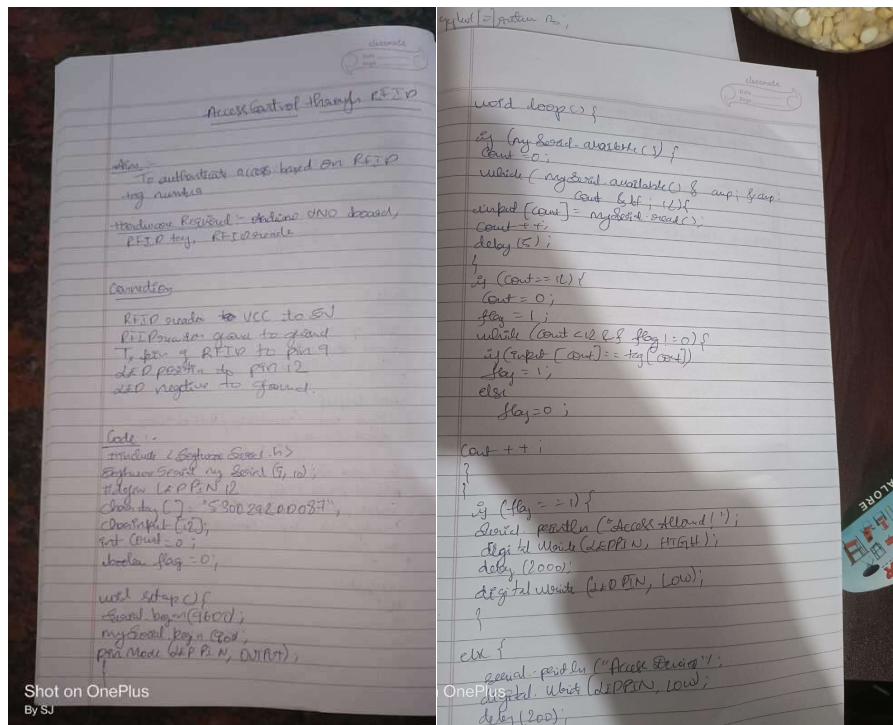 classmate
Date
Page
Access Control through RFID
Aim :-
To authenticate access based on RFID
tag number
Hardware Required :- Arduino UNO board,
RFID tag, RFID reader
Connection
RFID reader to VCC to 5V
RFID reader ground to ground
Tx pin of RFID to pin 9
LED positive to pin 12
LED negative to ground.
Code :-
#include <Software Serial.h>
Software Serial my Serial (9, 10);
#define LEDPIN 12
char tag [] = "530029200087",
char input [12];
int count = 0;
boolean flag = 0;
void setup() {
Serial.begin(9600);
mySerial.begin
pin Mode (LEDPIN, OUTPUT);
}
Shot on OnePlus
By SJ
classmate
Date
Page
void loop() {
if (my Serial.available()) {
count = 0;
while (mySerial.available() & amp; & amp;
count & lt; 12) {
input [count] = mySerial.read();
count ++;
delay (5);
}
if (count == 12) {
count = 0;
flag = 1;
while (count < 12 && flag != 0) {
if (input [count] == tag [count])
flag = 1;
else
flag = 0;
count ++;
}
}
if (flag == 1) {
Serial println ("Access Allowed!");
digital Write (LEDPIN, HIGH);
delay (2000);
digital Write (LEDPIN, LOW);
}
else {
serial.println ("Access Denied");
digital Write (LEDPIN, LOW);
delay (200);
OnePlus
ALORE